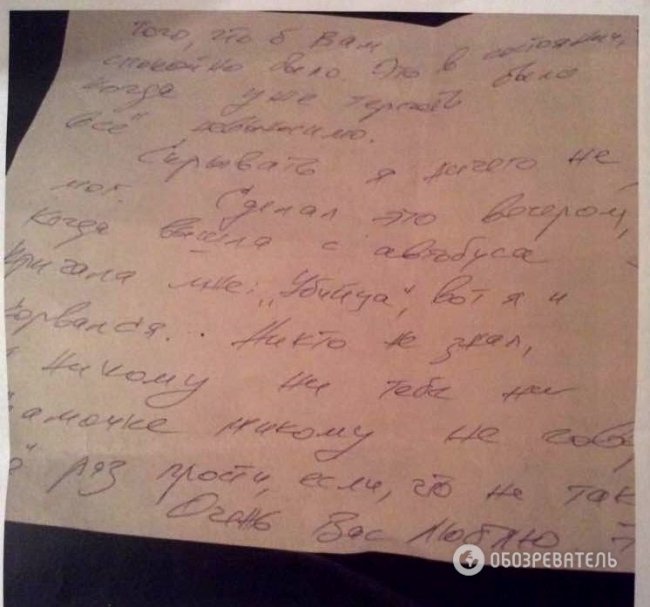 того, что б Вам
спокойно было. Это в состоянии,
когда уже терпеть было
всё невыносимо.
Скрывать я ничего не
мог. Сделал это вечером,
когда вышла с автобуса
кричала мне: „Убийца", вот я и
сорвался... Никто не знал,
никому ни тебе ни
мамочке никому не гово
раз прости, если, что не так
Очень Вас люблю
ОБОЗРЕВАТЕЛЬ